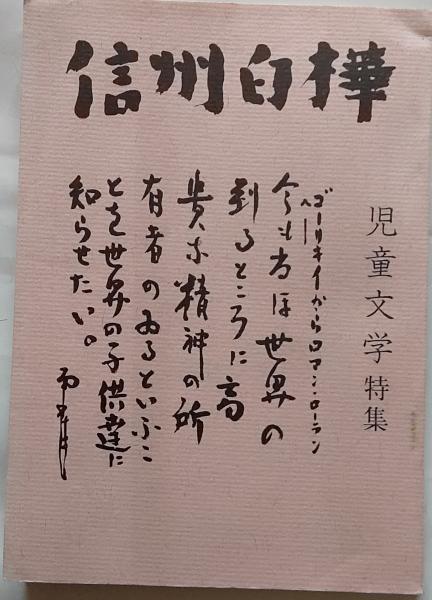 信州白樺
児童文学特集
ゴーリキイからロマン・ローラン
へ
今もなほ世界の
到るところに高
貴な精神の所
有者のゐるといふこ
とを世界の子供達に
知らせたい。